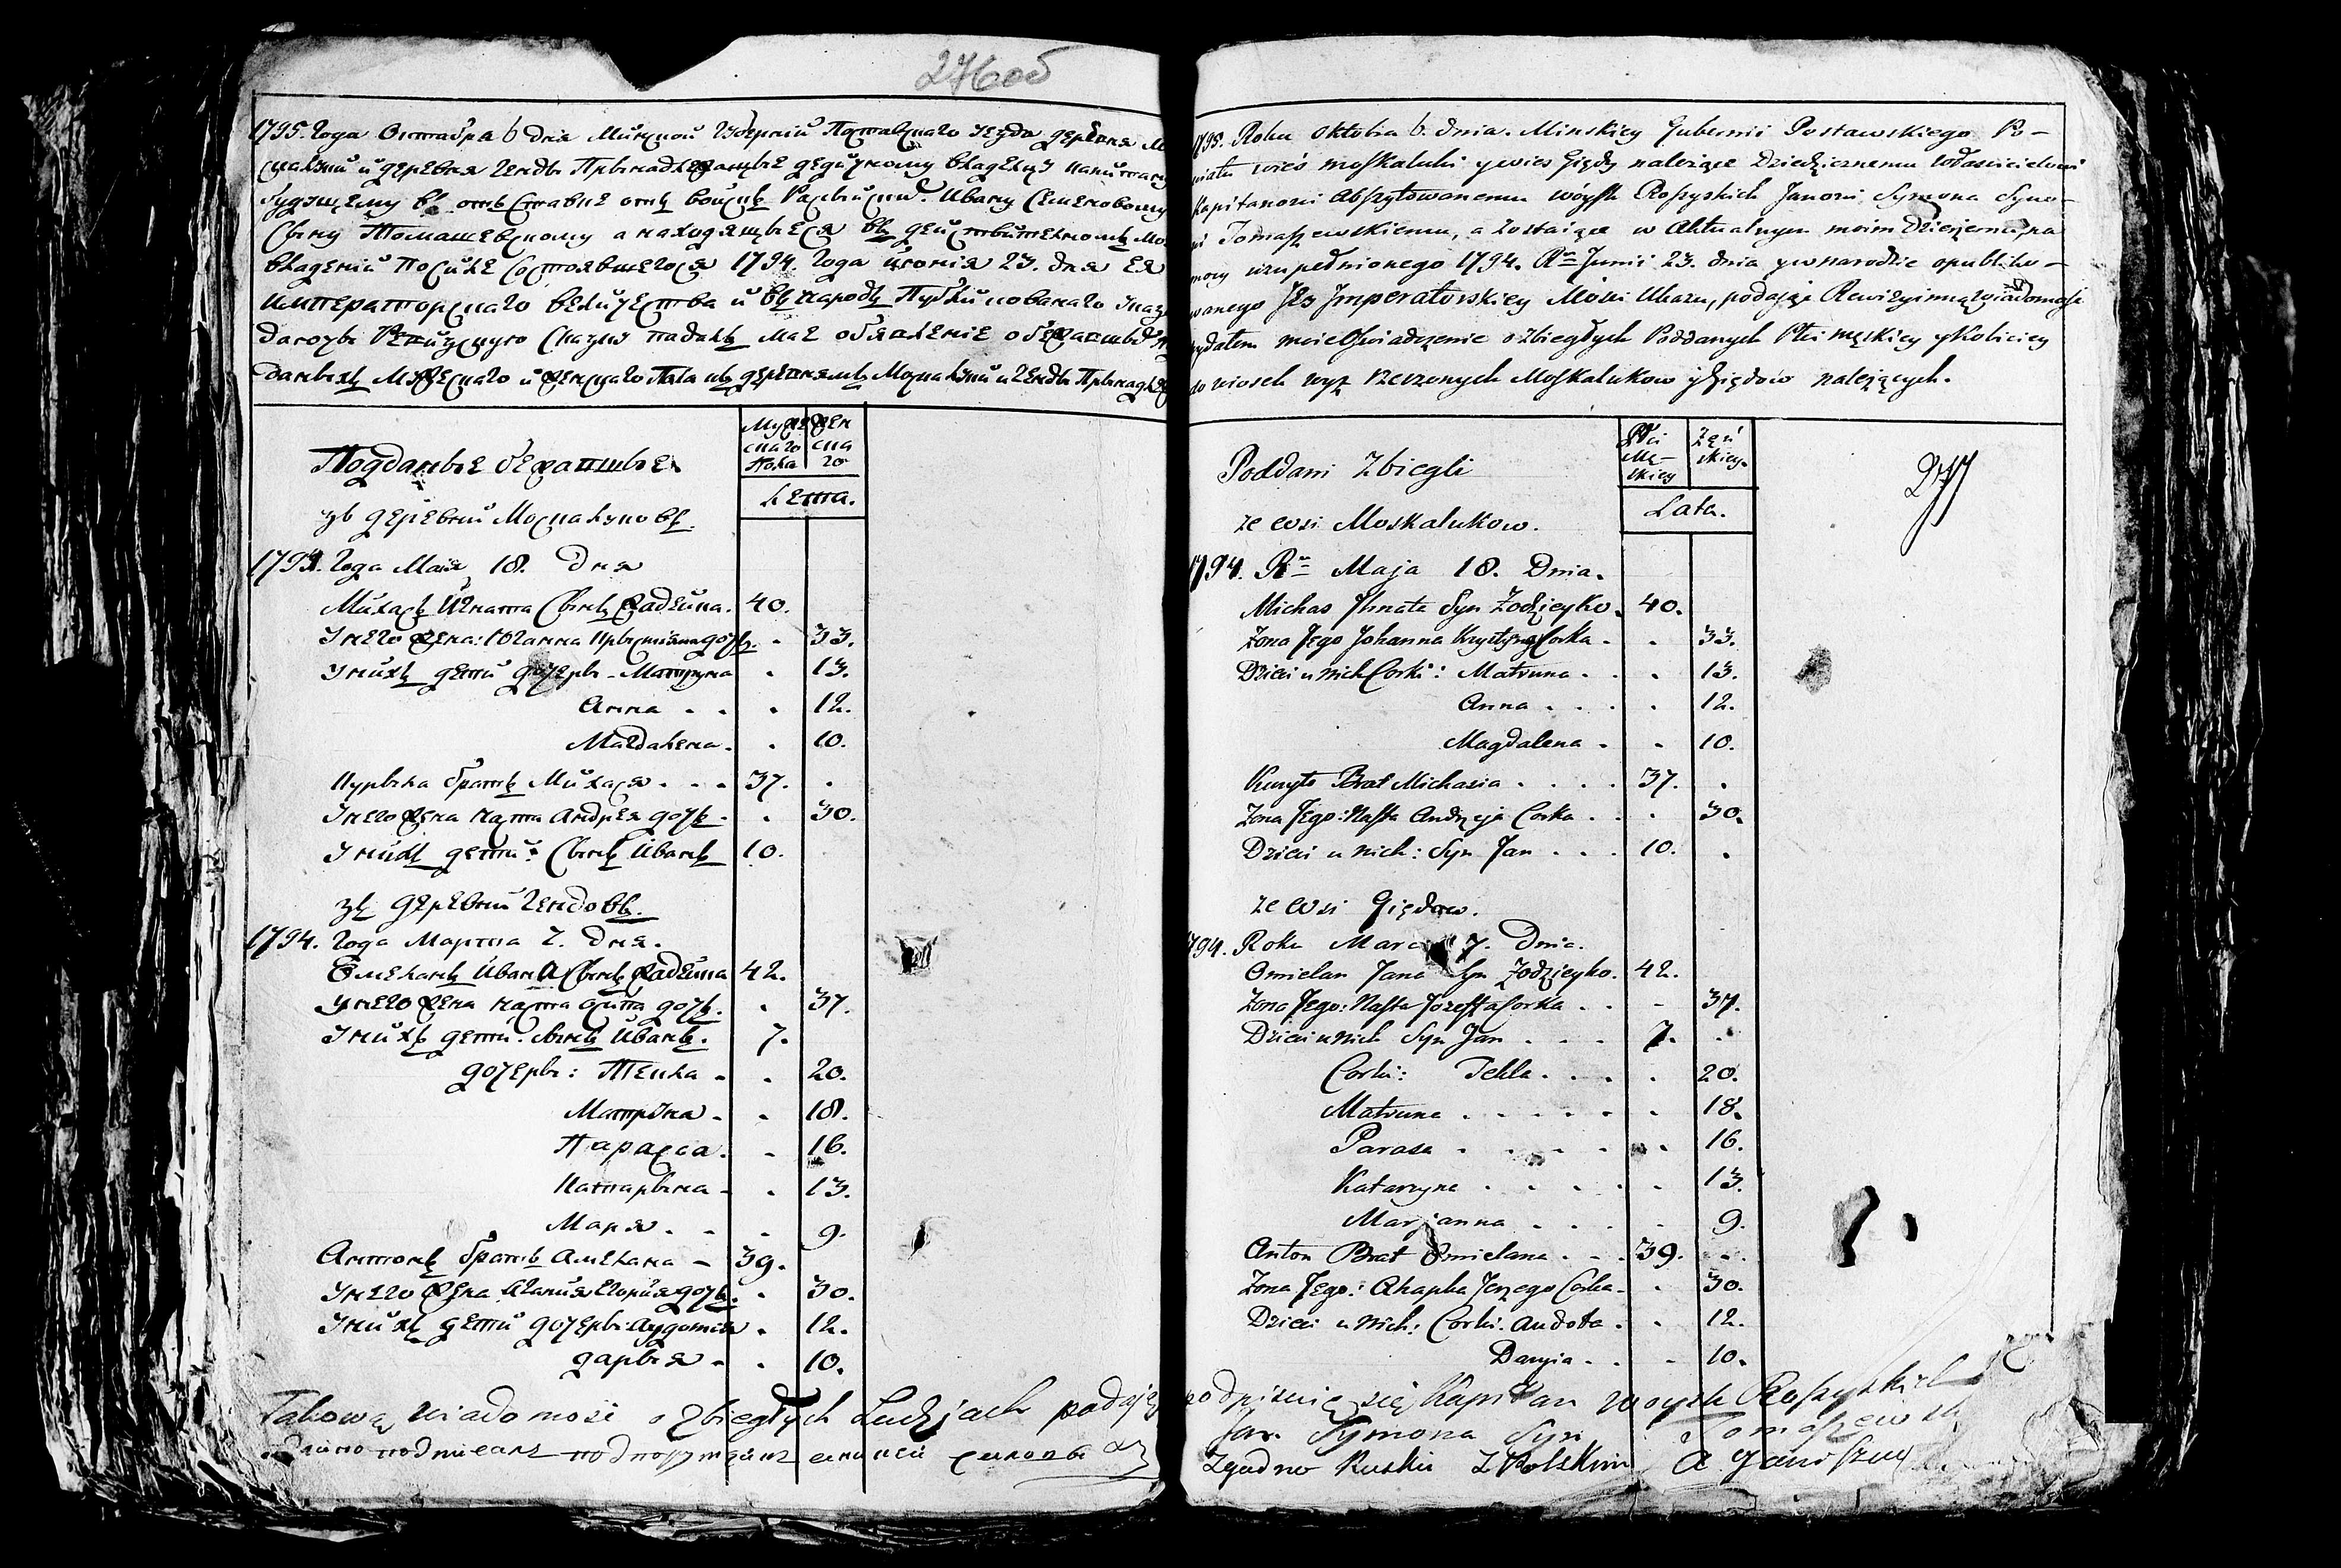 276об
1795. Года Октабра 6 дня Минской Губерній Поставскаго уезда деревня
и деревня Генды Принадлежащые дедичному владелцу капитану
будущему въ отъставке отъ войскъ Расыйскихъ Ивану Семеновому
Сыну Томашевскому а находящыеся въ дейстъвителномъ
владеній Посиле состоявшегося 1794. Года июнія 23. дня Ея
императорскаго величества и въ народъ Публикованаго
Скаску падалъ мае обявление о бежавшых
Мужескаго и женскаго Пола къ деревнямъ Москалуки и Генды
Подданые бежавшые
Муже скаго Пола
жен ска го
Лета.
зъ деревни Москалуковъ.
1794. Года Мая 18. Дня
Михась Игната Сынъ Жадейка. 40.
У него жена: Юганна дочъ. . 33.
У нихъ дети дочеры - Матруна . 13.
Анна . . . 12.
Магдалена. . 10.
Курыла братъ Михася . . . 37. .
У него жена Наста Андрея дочъ . . 30.
У нихъ дети: Сынъ Иванъ 10.
зъ деревни Гендовъ.
1794. Года Марта 7. Дня.
Омеланъ Ивана Сынъ Жадейка 42.
У него жена Наста дочъ. . 37.
У нихъ дети: Сынъ Иванъ. 7.
дочеры: Текла . . 20.
Матруна . . 18.
Параска . . 16.
Катарына . . 13.
Маря . . . 9.
Антонъ братъ Амелана – 39.
У него жена дочъ. . 30.
У нихъ дети дочеры: Аудотя . 12.
дарыя . . 10.
Takową wiadomość o zbiegłych Ludziach podaję
1795. Roku Oktobra 6. dnia. Minskiey Gubernii Postawskiego Po-
wiatu wieś Moskaluki y wieś Giędy należące Dziedzicznemu Właścicielowi
Kapitanowi Abszytowanemu wóysk Rossyskich Janowi Symona Syno-
wi Tomaszewskiemu, a zostaiące w Aktualnym moim Dzierżeniu, na
mocy uzupełnionego 1794. Ru Junii 23. dnia y w narodzie opubliko-
wanego Jey Imperatorskiey Mości Ukazu, podając Rewizyiną wiadomość
wydałem moie Oświadczenie o zbiegłych Poddanych Płci męskiey y Kobiecey
do wiosek wyż rzeczonych Moskalukow y Giędów należących.
277
Poddani Zbiegli
Płci Mę-skiey
Żeń skiey.
Lata.
ze wsi Moskalukow.
1794. Ru Maja 18. Dnia.
Michas Ihnata Syn Żodzieyko. 40.
Żona Jego Johanna Corka . . 33.
Dzieci u nich Corki: Matruna . . . 13.
Anna . . . . 12.
Magdalena . . 10.
Kuryło Brat Michasia . . . . 37. .
Żona Jego: Nasta Andrzeja Corka . . . 30.
Dzieci u nich: Syn Jan . . . 10. .
ze wsi Giędow.
1794. Roku 7. Dnia.
Omielan Jana Syn Żodzieyko. 42.
Żona Jego: Nasta Jozefa Corka . . - 37.
Dzieci u nich Syn Jan . . . 7. .
Corki: Tekla . . . . 20.
Matruna . . . . . . 18.
Parasa . . . . . . 16.
Katarzyna . . . . . . 13.
Marjanna . . . . . 9.
Anton Brat Omielana . . . 39. .
Żona Jego: Ahapka Jerzego Corka . . 30.
Dzieci u nich: Corki. Audota . . 12.
Daryia . . - 10.
podpisuię się Kapitan woysk Rossyskich
Jan Symona Syn Tomaszewski
Zgodno Ruski z Polskim